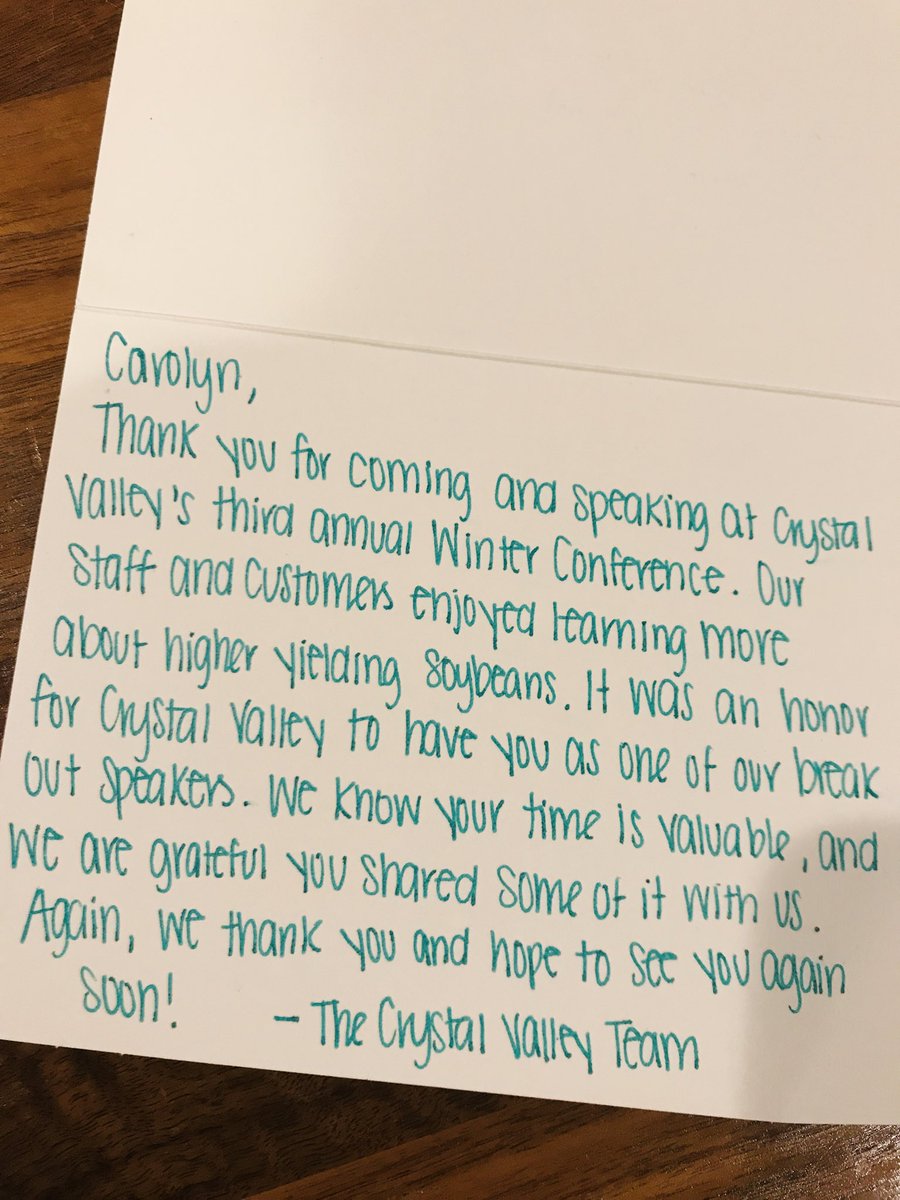 Carolyn,
Thank you for coming and speaking at Crystal
Valley's third annual Winter Conference. Our
Staff and customers enjoyed learning more
about higher yielding soybeans. It was an honor
for Crystal Valley to have you as one of our break
out speakers. We know your time is valuable, and
we are grateful you shared some of it with us.
Again, we thank you and hope to see you again
soon! - The Crystal Valley Team